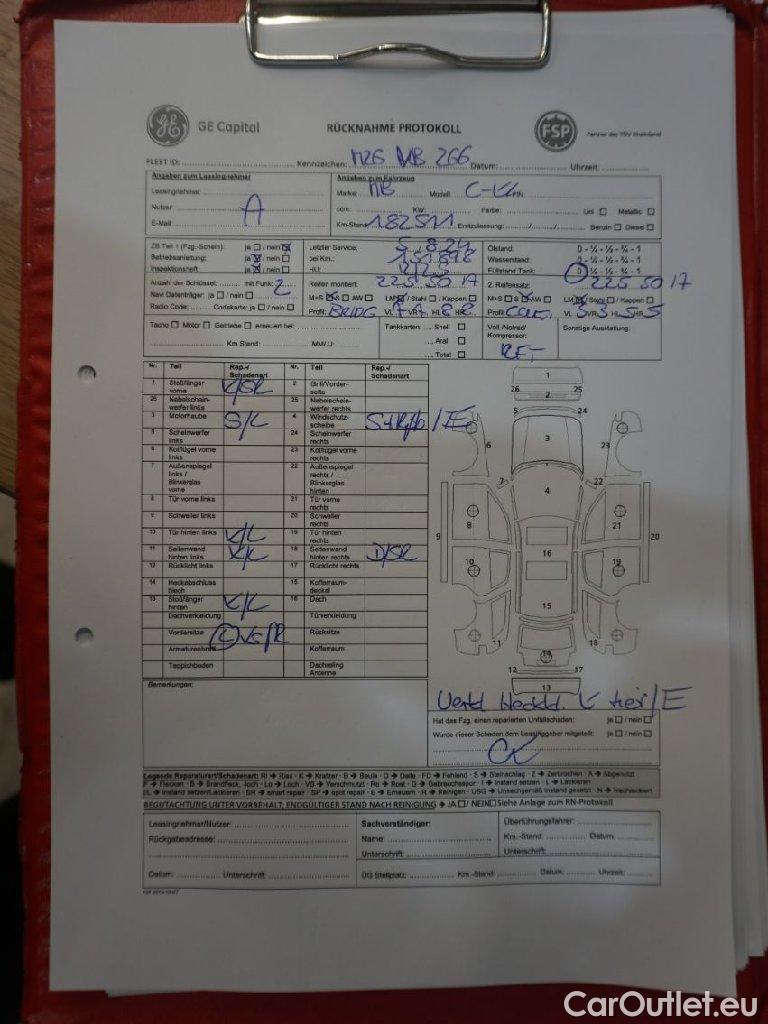 GE Capital
RÜCKNAHME PROTOKOLL
FSP
Partner des TÜV Rheinland
FLEET ID: Kennzeichen: Datum: Uhrzeit:
Angaben zum Leasingnehmer
Angaben zum Fahrzeug
Leasingnehmer:
Marke: MB Modell:
Nutzer: A
ccm: KW: Farbe: Uni Metallic
E-Mail:
Km-Stand: 182511 Erstzulassung: Benzin Diesel
ZB Teil 1 (Fzg.-Schein): ja / nein
Letzter Service: 5.8.24
Ölstand: 0 - ¼ - ½ - ¾ - 1
Betriebsanleitung: ja / nein
bei Km.: 151898
Wasserstand: 0 - ¼ - ½ - ¾ - 1
Inspektionsheft ja / nein
HU:
Füllstand Tank: 0 - ¼ - ½ - ¾ - 1
Anzahl der Schlüssel: mit Funk: 2
Reifen montiert: 225 50 17
2. Reifensatz: 225 50 17
Navi Datenträger: ja / nein
M+S S AW LM / Stahl / Kappen
M+S S AW LM / Stahl / Kappen
Radio Code: Codekarte: ja / nein
Profil: VL 7 VR 7 HL 8 HR 8
Profil VL 5 VR 5 HL 5 HR 5
Tacho Motor Getriebe erneuert bei:
Tankkarten: Shell
Voll-/Notrad/
Kompressor:
Sonstige Ausstattung:
Km Stand: MWU:
Aral
Total
Nr. Teil Rep.-/ Schadenart Nr. Teil Rep.-/ Schadenart
1 Stoßfänger vorne K/SR 2 Grill/Vorderseite
26 Nebelscheinwerfer links 25 Nebelscheinwerfer rechts
3 Motorhaube S/L 4 Windschutzscheibe
5 Scheinwerfer links 24 Scheinwerfer rechts
6 Kotflügel vorne links 23 Kotflügel vorne rechts
7 Außenspiegel links / Blinkerglas vorne 22 Außenspiegel rechts / Blinkerglas hinten
8 Tür vorne links 21 Tür vorne rechts
9 Schweller links 20 Schweller rechts
10 Tür hinten links K/L 19 Tür hinten rechts
11 Seitenwand hinten links K/L 18 Seitenwand hinten rechts D/SR
12 Rücklicht links 17 Rücklicht rechts
14 Heckabschlussblech 15 Kofferraumdeckel
13 Stoßfänger hinten K/L 16 Dach
Dachverkleidung Türverkleidung
Vordersitze (L) VS/R Rücksitze
Armaturenbrett Kofferraum
Teppichboden Dachreling Antenne
1
26 2 25
5 24
6 3 23
7 22
4
8 21
9 20
16
10 19
15
11 18
14
12 17
13
Bemerkungen:
Hat das Fzg. einen reparierten Unfallschaden: ja / nein
Wurde dieser Schaden dem Leasinggeber mitgeteilt: ja / nein
Legende Reparaturart/Schadenart: RI → Riss - K → Kratzer - B → Beule - D → Delle - FC → Fehlend - S → Steinschlag - Z → Zerbrochen - A → Abgenutzt
F → Flecken - B → Brandfleck, -loch - Lo → Loch - VS → Verschmutzt - Ro → Rost - G → Gebrauchsspur - I → Instand setzen - L → Lackieren
I/L → Instand setzen/Lackieren - SR → smart repair - SP → spot repair - E → Erneuern - R → Reinigen - USG → Unsachgemäß instand gesetzt - N → Nachlackiert
BEGUTACHTUNG UNTER VORBEHALT; ENDGÜLTIGER STAND NACH REINIGUNG → JA / NEIN Siehe Anlage zum RN-Protokoll
Leasingnehmer/Nutzer:
Sachverständiger:
Überführungsfahrer:
Rückgabeadresse:
Name:
Km.-Stand: Datum:
Unterschrift
Unterschrift:
Datum: Unterschrift
ÜG Stellplatz: Km.-Stand: Datum: Uhrzeit:
CarOutlet.eu